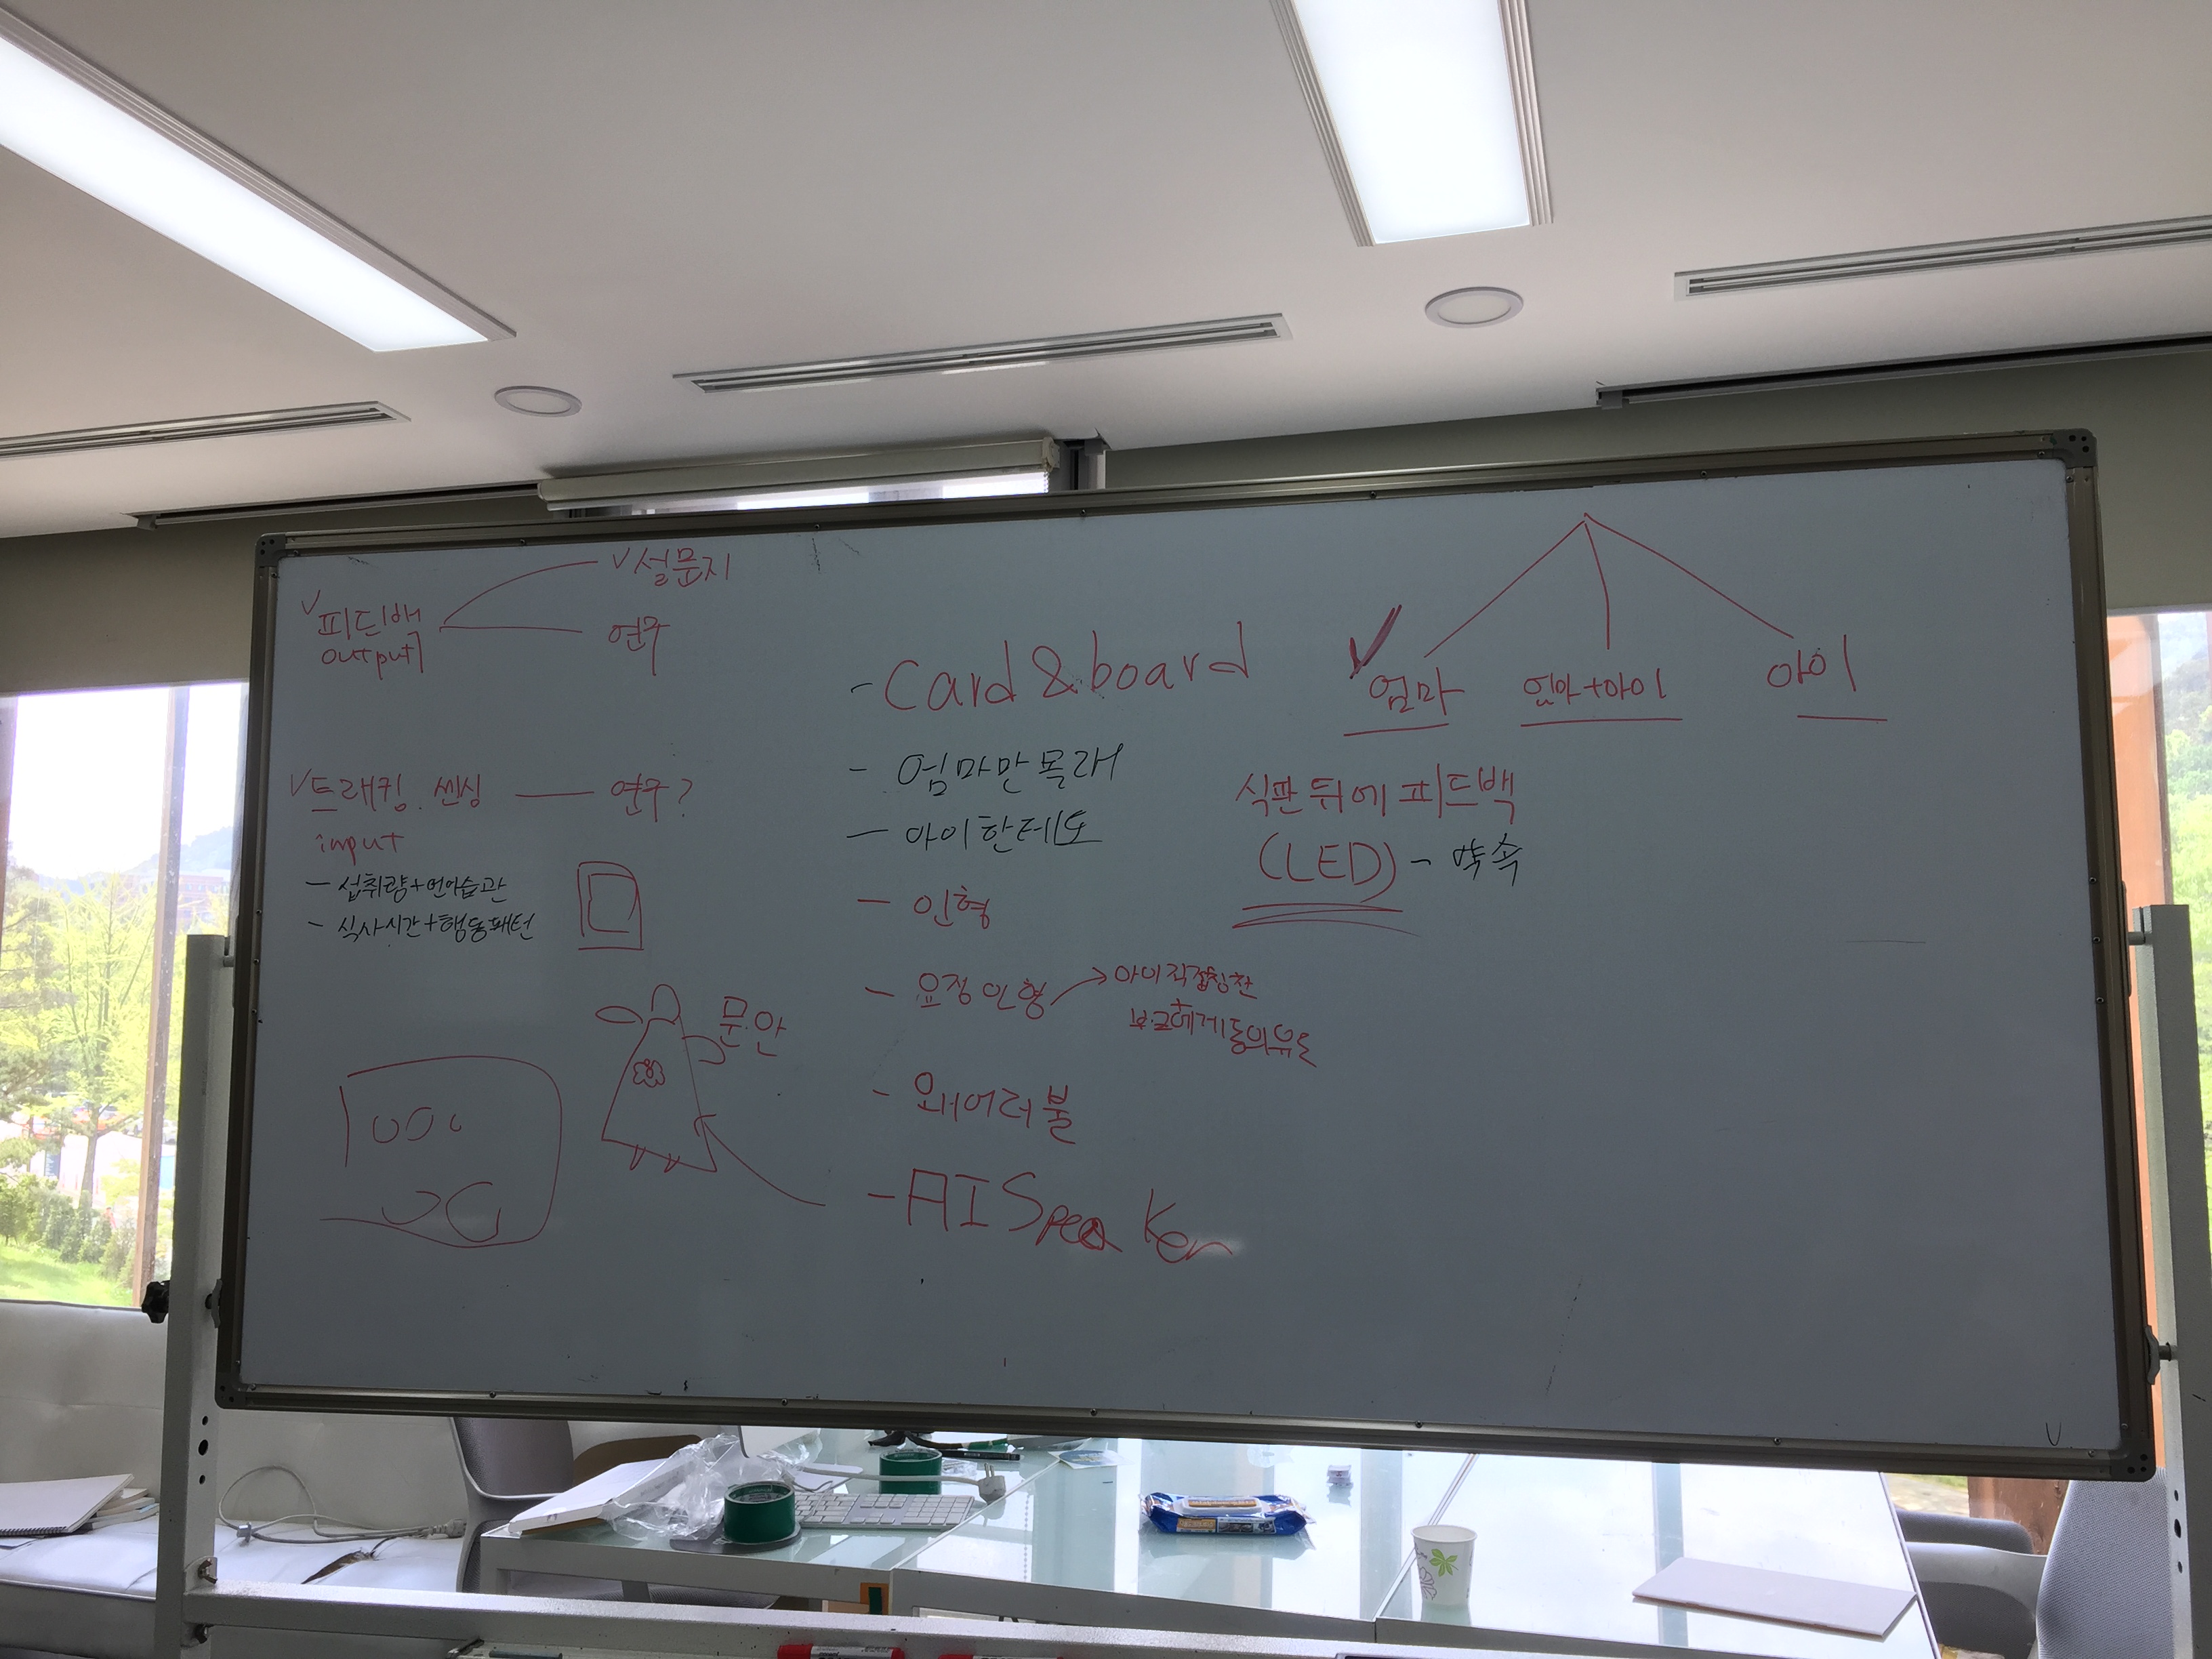 ✓설문지
✓피드백
output
연구
✓트래킹. 센싱 — 연구?
input
- 섭취량+언어습관
- 식사시간+행동패턴
문.안
- Card & board
- 엄마만 몰래
- 아이한테도
- 인형
- 요정인형 → 아이직접칭찬
+
부모에게동의유도
- 왜어러불
- AI Speaker
✓
엄마 엄마+아이 아이
식판 뒤에 피드백
(LED) - 약속